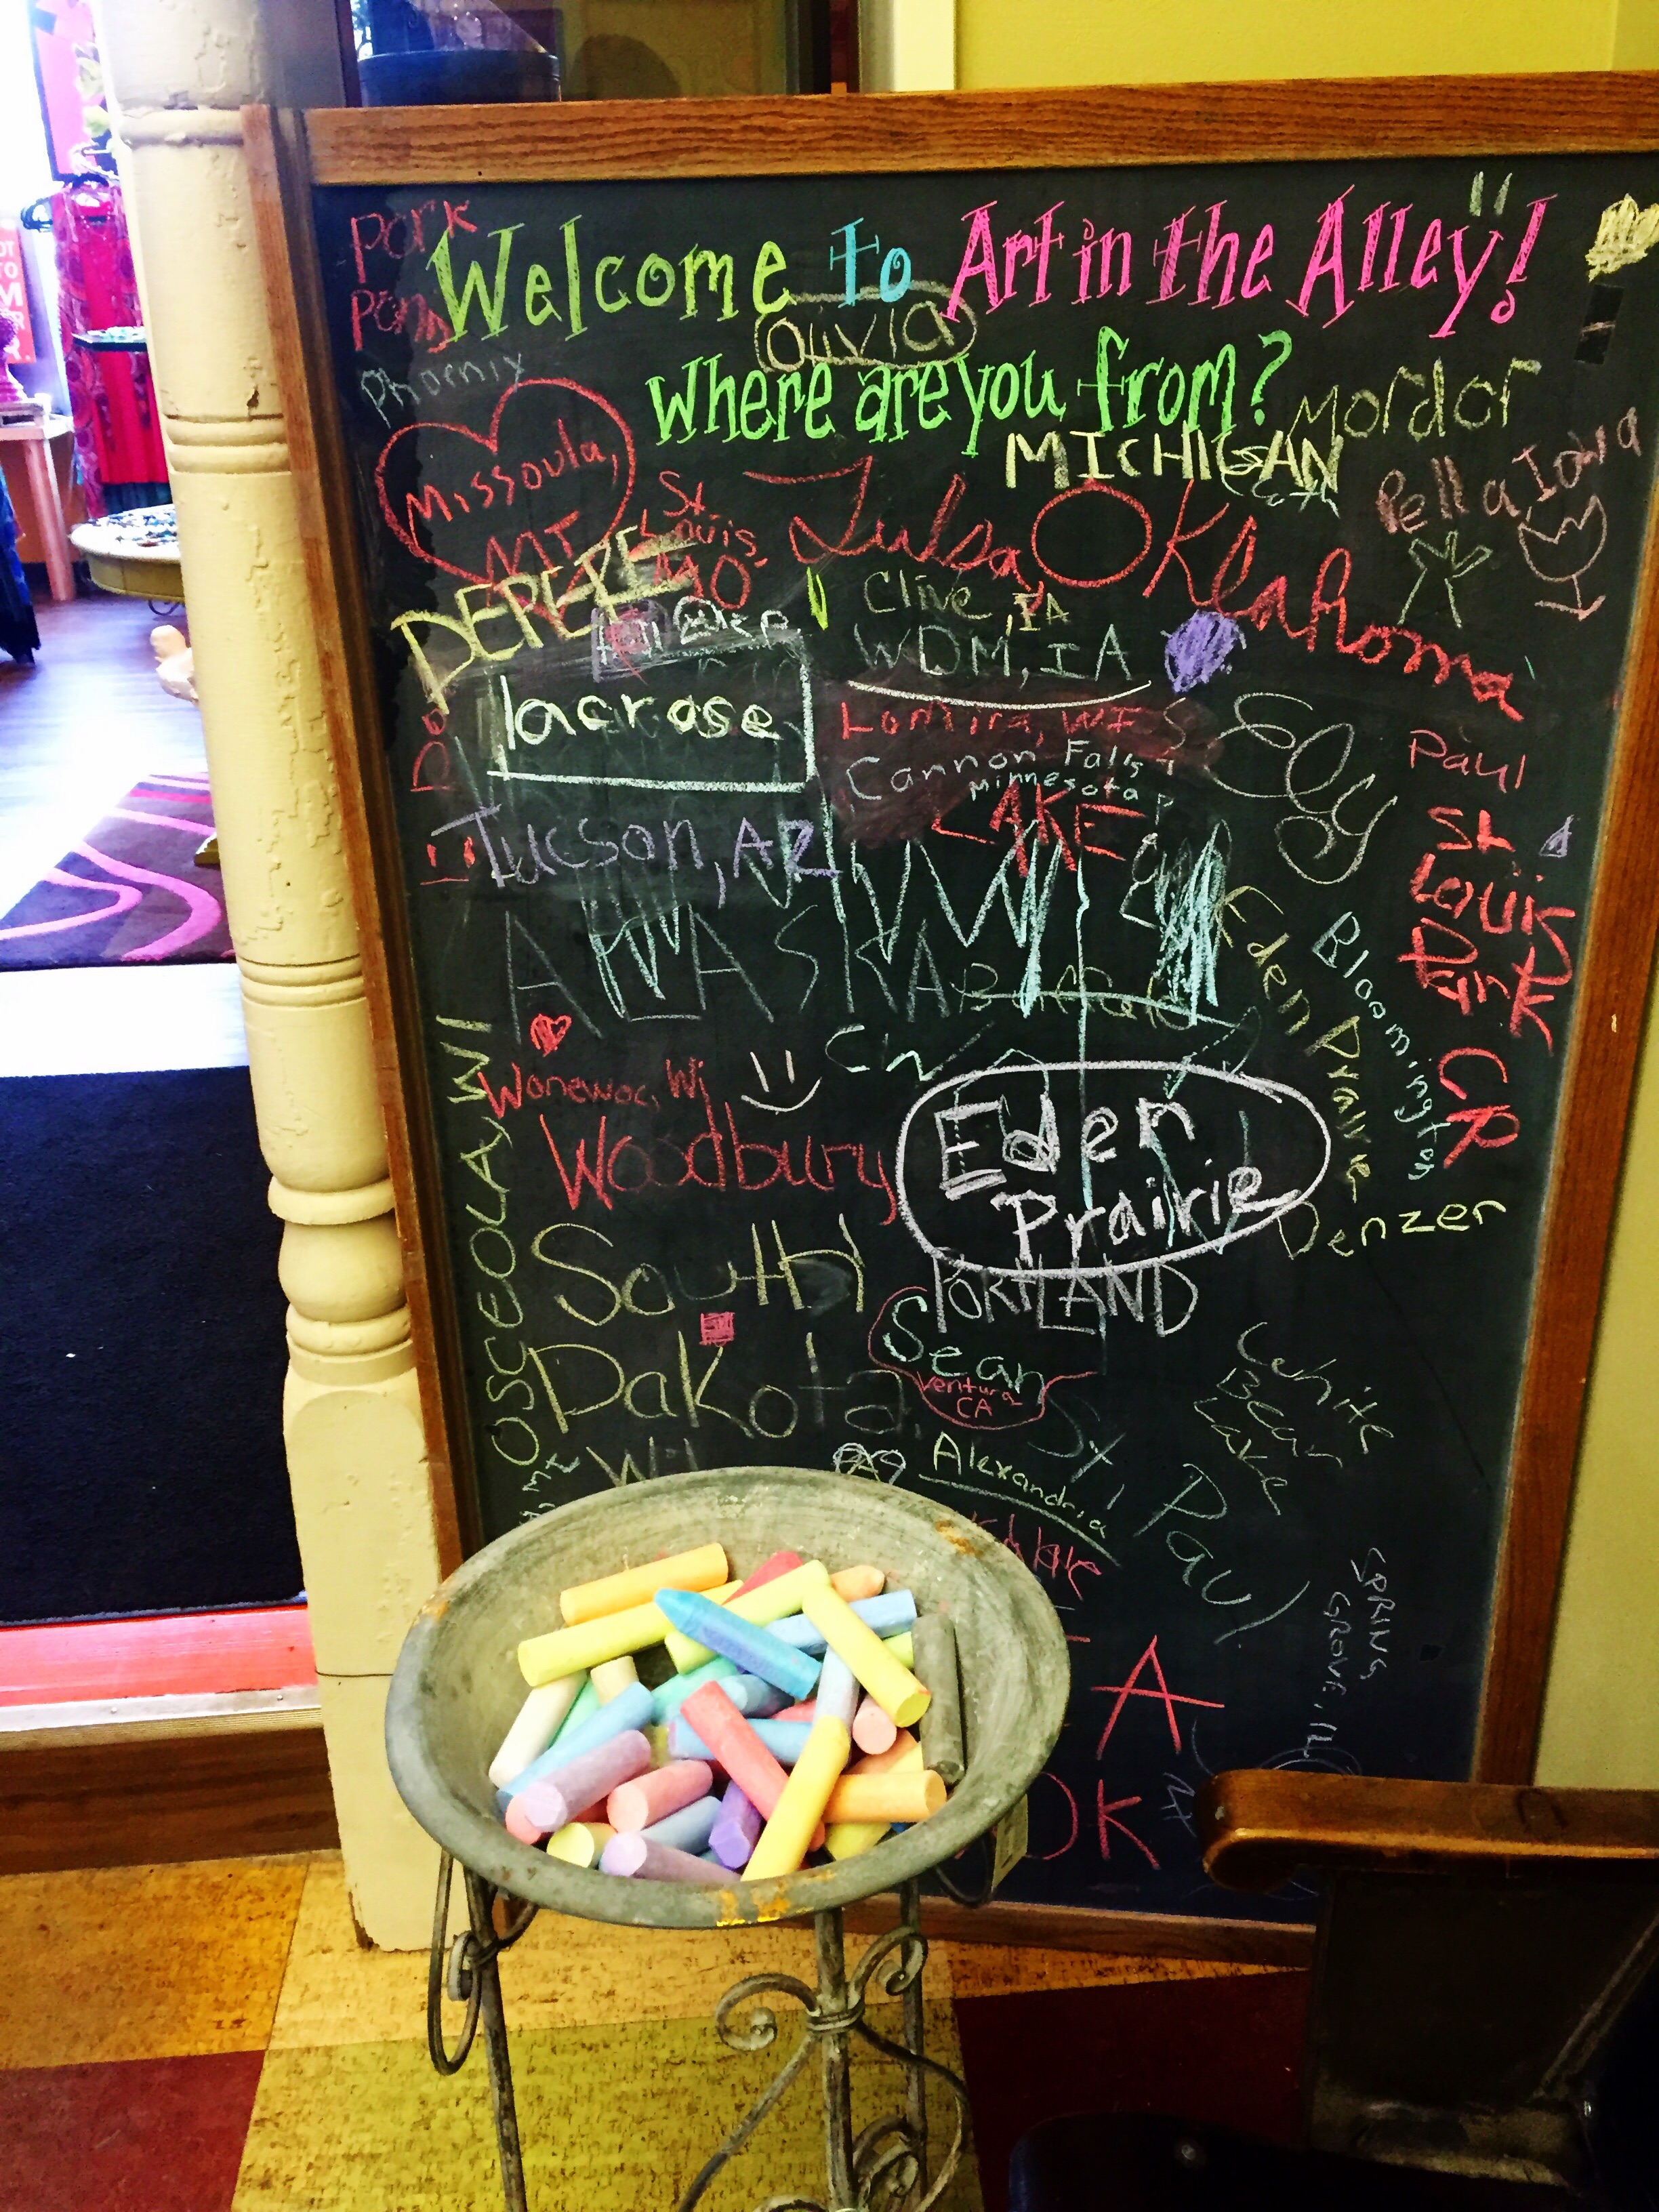 Welcome to Art in the Alley!
Olivia
where are you from?
Phoenix
Mordor
MICHIGAN
Missoula,
MT
St.
Louis,
MO
Tulsa, Oklahoma
Pella, Iowa
DEPERE
Clive, IA
WDM, IA
lacrose
Lomira, WI
Cannon Falls
Minnesota
LAKE
Tucson, AZ
Paul
St.
Louis
Park
CR
ALASKA
Eden Prairie
Bloomington
OSCEOLA, WI
Wonewoc, Wi
Woodbury
Eden
Prairie
Denzer
South
Dakota
PORTLAND
Sean
Ventura
CA
White
Bear
Lake
Alexandria
St. Paul
SPRING
GROVE, IL
A
OK